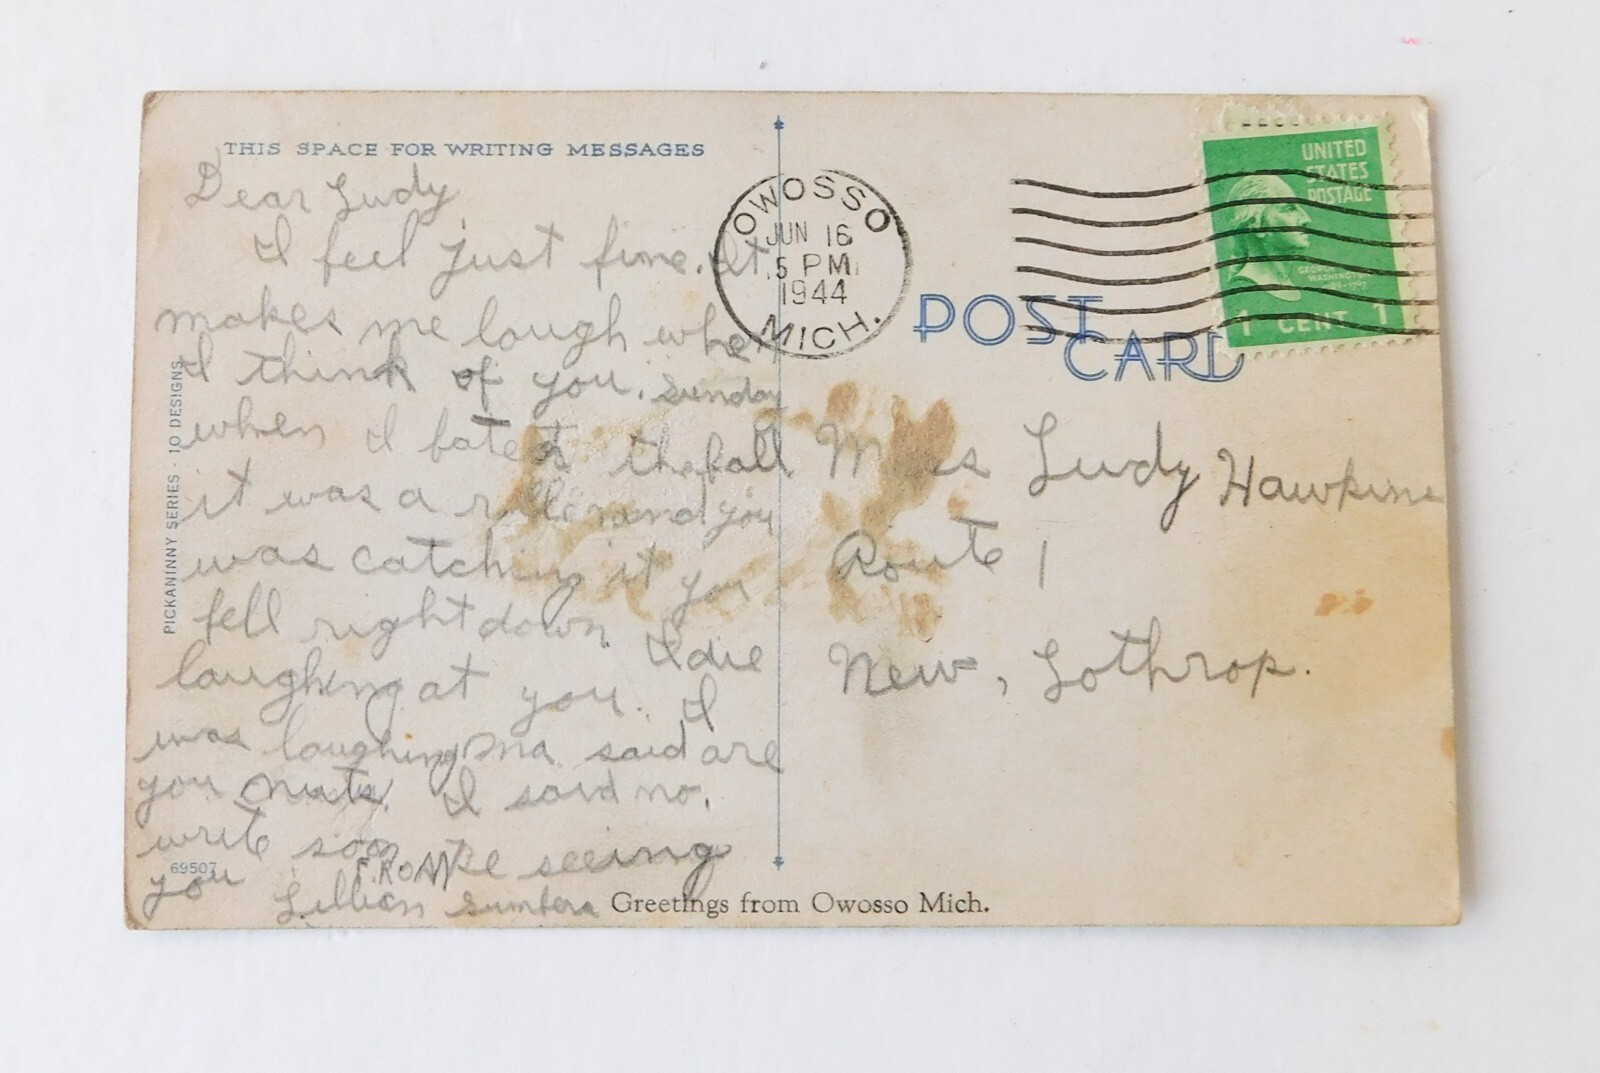 THIS SPACE FOR WRITING MESSAGES
Dear Ludy
I feel just fine. It
makes me laugh when
I think of you. Sunday
when I bated the ball
it was a roller and you
was catching it you
fell right down I die
laughing at you. I
was laughing ma said are
you nuts. I said no.
write soon Be seeing
you
FROM
Lillian
PICKANINNY SERIES - 10 DESIGNS
69507
Greetings from Owosso Mich.
OWOSSO
JUN 16
5 PM
1944
MICH.
UNITED
STATES
POSTAGE
GEORGE
WASHINGTON
1 CENT 1
POST
CARD
Miss Ludy Hawkins
Route 1
New, Lothrop.